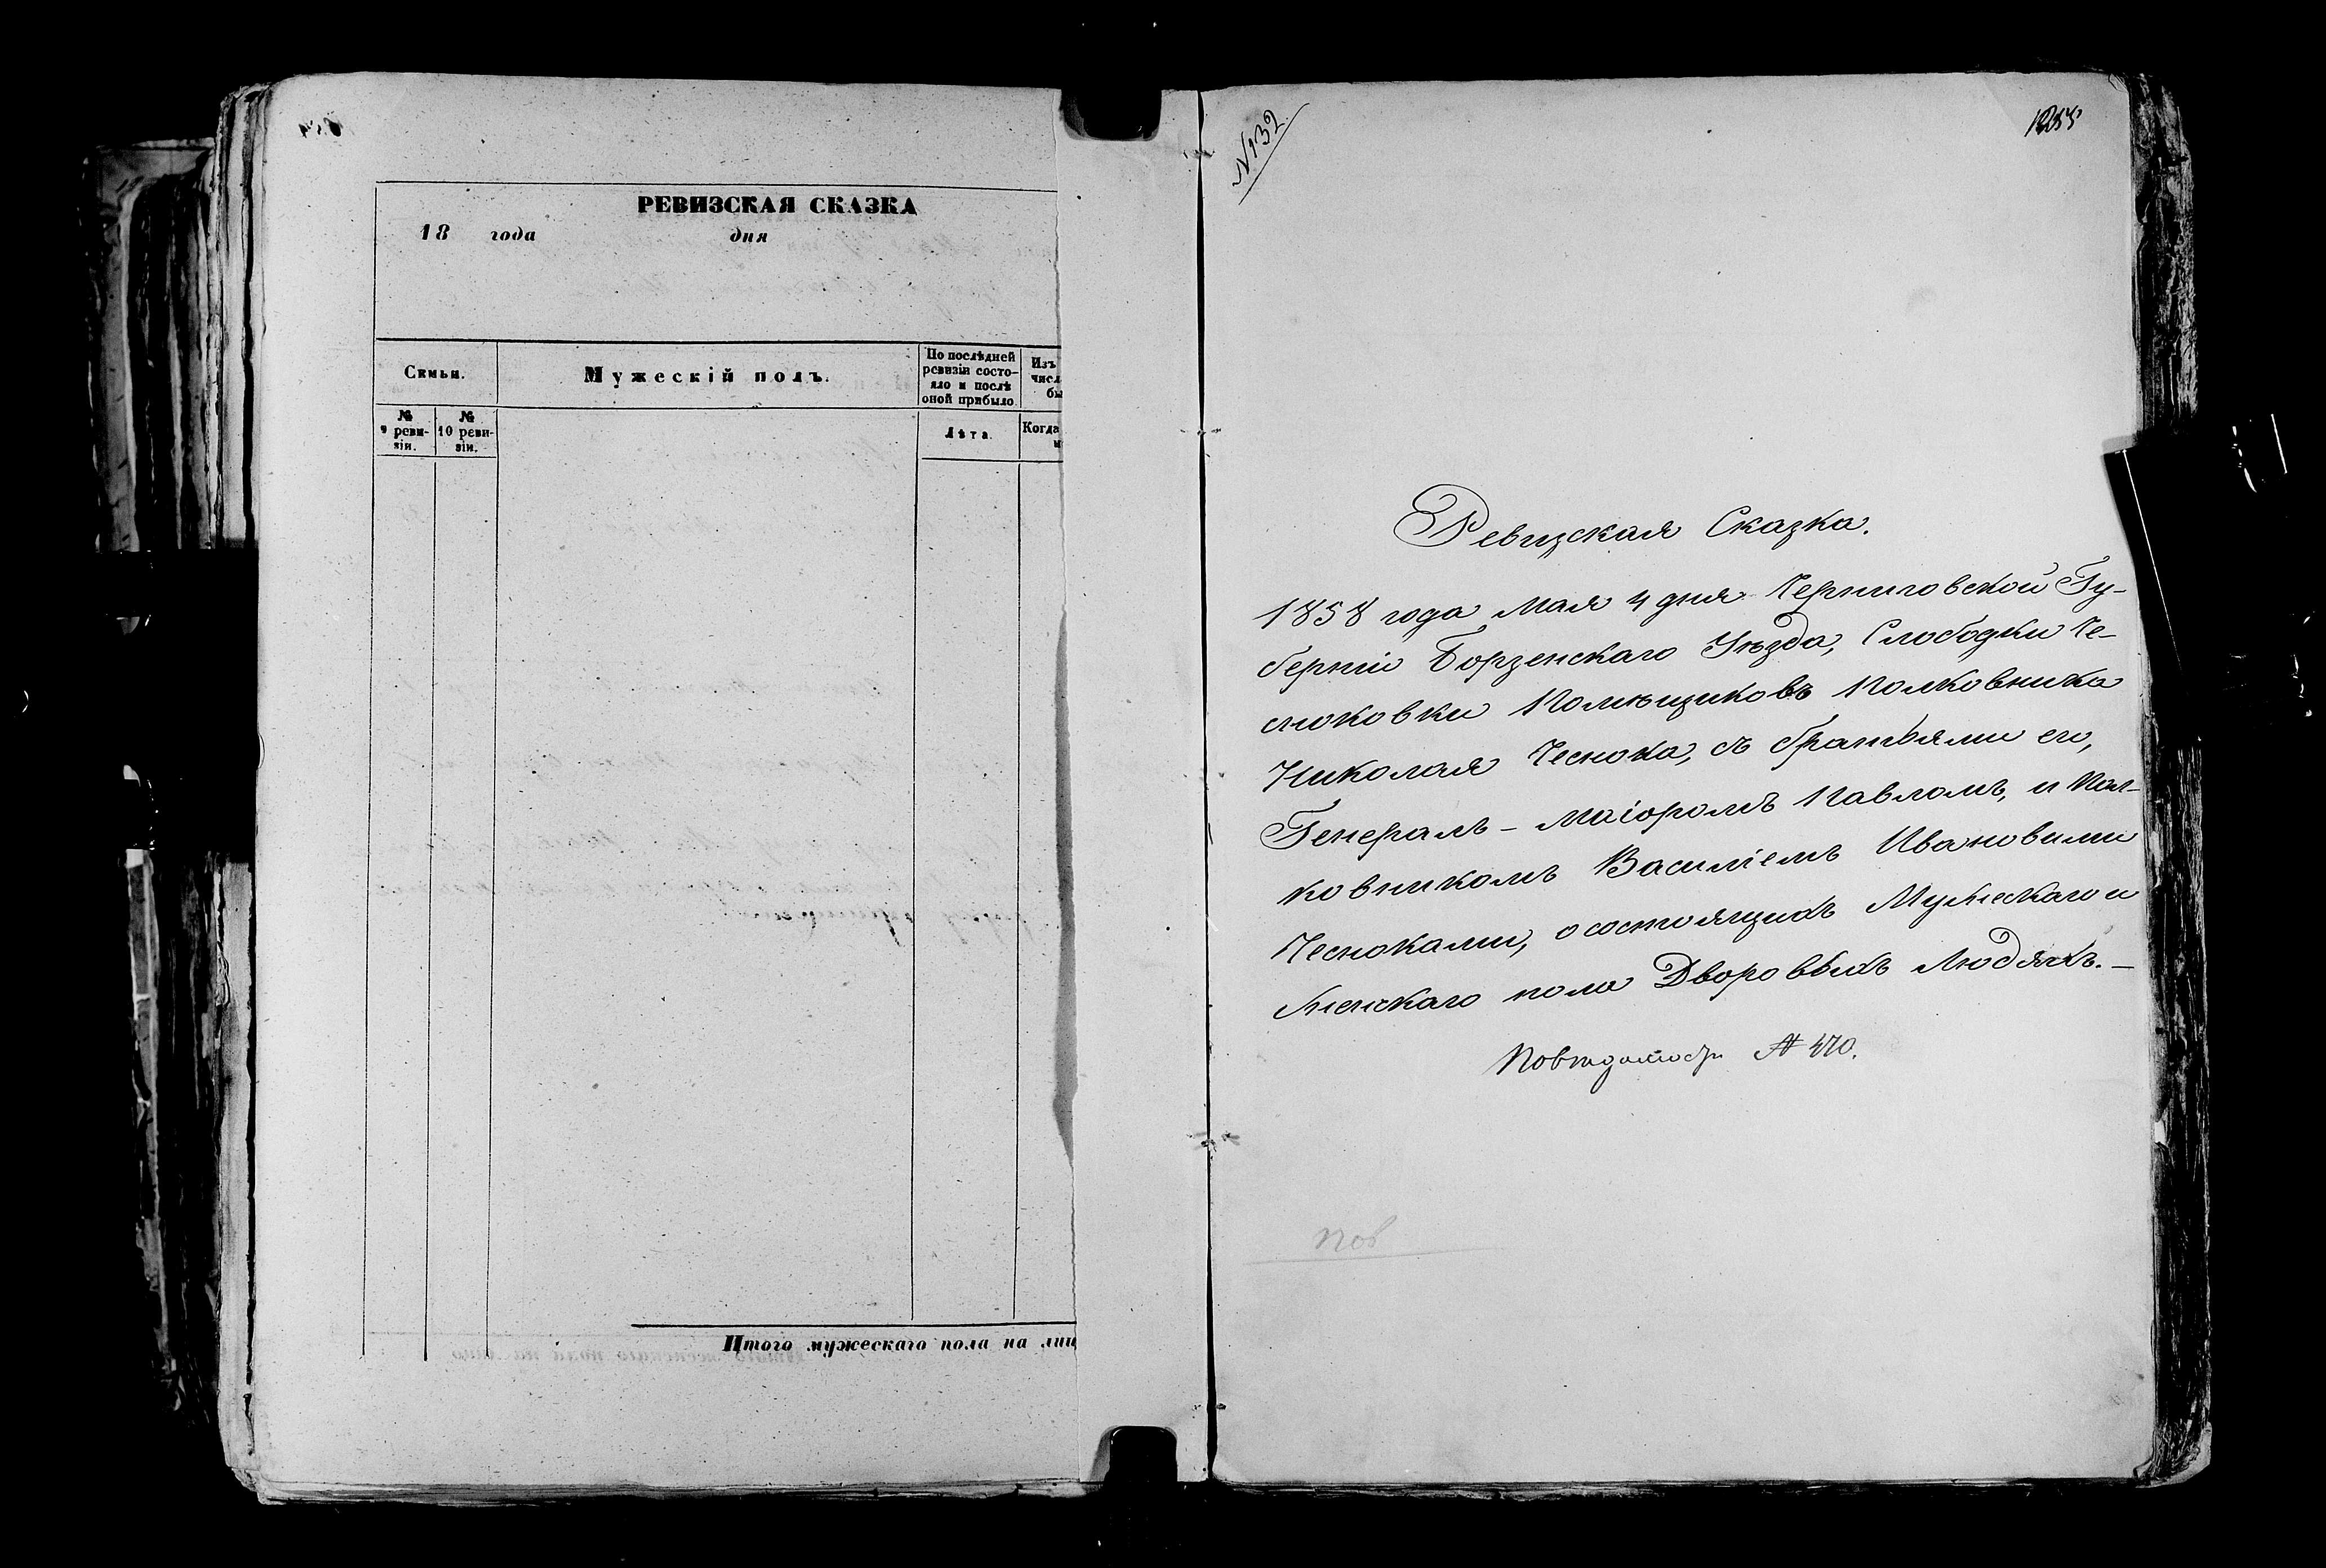 РЕВИЗСКАЯ СКАЗКА
18 года дня
Семьи.
Мужескій полъ.
По послѣдней
ревизіи состо-
яло и послѣ
оной прибыло.
Изъ
числ
бы
№
9 реви-
зіи.
№
10 реви-
зіи.
Лѣта.
Когда
Итого мужескаго пола на лиц
№132.
Ревизская Сказка.
1858 года Мая 4 дня Черниговской Гу-
берніи Борзенскаго Уѣзда, Слободки Че-
сноковки Помѣщиковъ Полковника
Николая Чеснока, съ братьями его,
Генералъ-Маіоромъ Павломъ, и Пол-
ковникомъ Василіемъ Ивановыми
Чесноками, о состоящихъ Мужескаго и
Женскаго пола Дворовыхъ Людяхъ.—
По вѣдомости № 470.
Пов